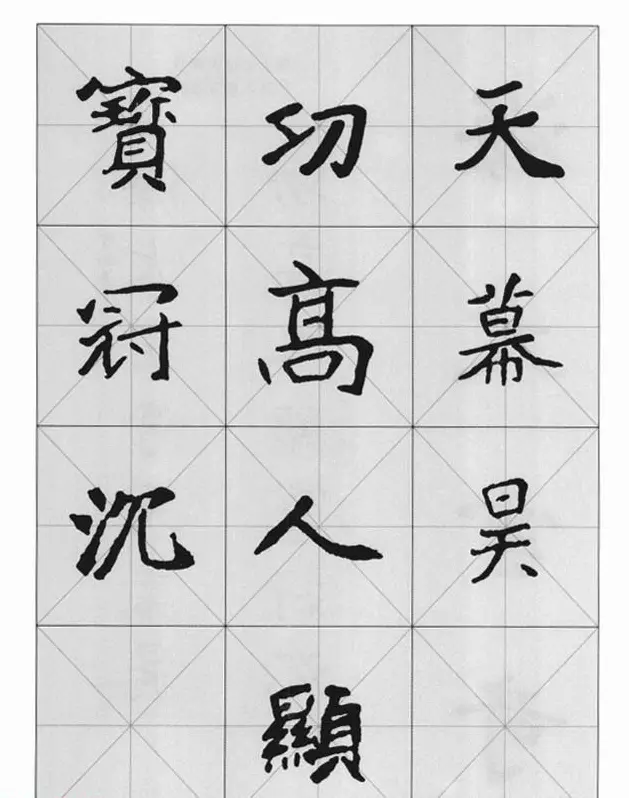 天幕昊
功高人顯
寶冠沉